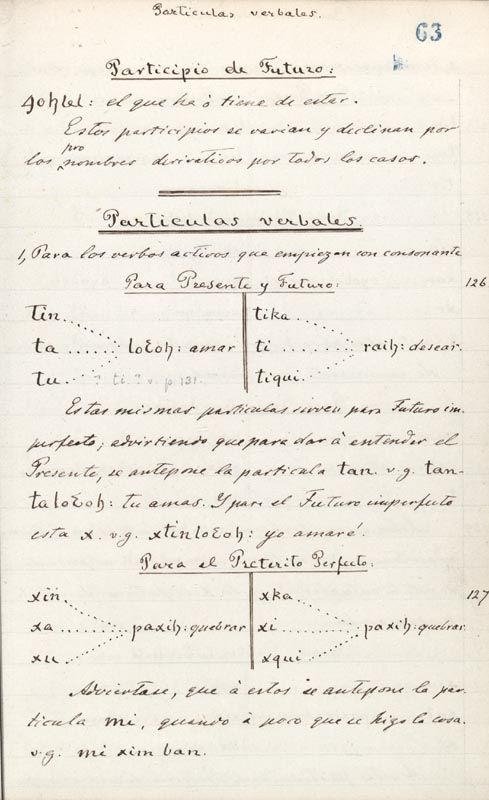 Particulas verbales.
63
Participio de Futuro:
Ꜭohlel: el que ha ó tiene de estar.
Estos participios se varian y declinan por
los pronombres derivativos por todos los casos.
Particulas verbales.
1, Para los verbos activos que empiezen con consonante
Para Presente y Futuro: 126
tin tika
ta loꜪoh: amar ti raih: desear.
tu ? ti? v. p. 131. tiqui
Estas mismas particulas sirven para Futuro im-
perfecto; advirtiendo que para dar á entender el
Presente, se antepone la particula tan. v.g. tan-
ta loꜪoh: tu amas. Y para el Futuro imperfecto
esta x. v.g. xtinloꜪoh: yo amaré.
Para el Preterito Perfecto:
xin xka 127
xa paxih: quebrar xi paxih: quebrar
xu xqui
Adviertase, que á estos se antepone la par-
ticula mi, quando á poco que se hizo la cosa.
v.g. mi xim ban.